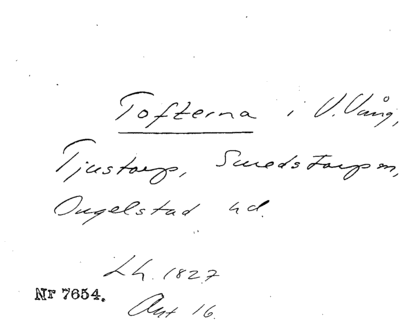 Tofterna i V. Vång,
Tjustorp, Smedstorp sn,
Ingelstad hd.
Lh. 1827
Nr 7654.
Akt 16.